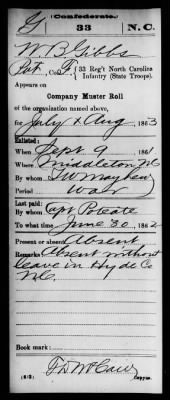 G (Confederate.)
33 N.C.
W B Gibbs
Pvt, Co. F, 33 Reg't North Carolina
Infantry (State Troops).
Appears on
Company Muster Roll
of the organization named above,
for July & Aug, 1863
Enlisted:
When Sept 9, 1861
Where Middleton NC
By whom T W Mayhew
Period War
Last paid:
By whom Capt Poteate
To what time June 30, 1862
Present or absent Absent
Remarks Absent without
leave in Hyde Co
N.C.
Book mark:
(642)
Copyist.